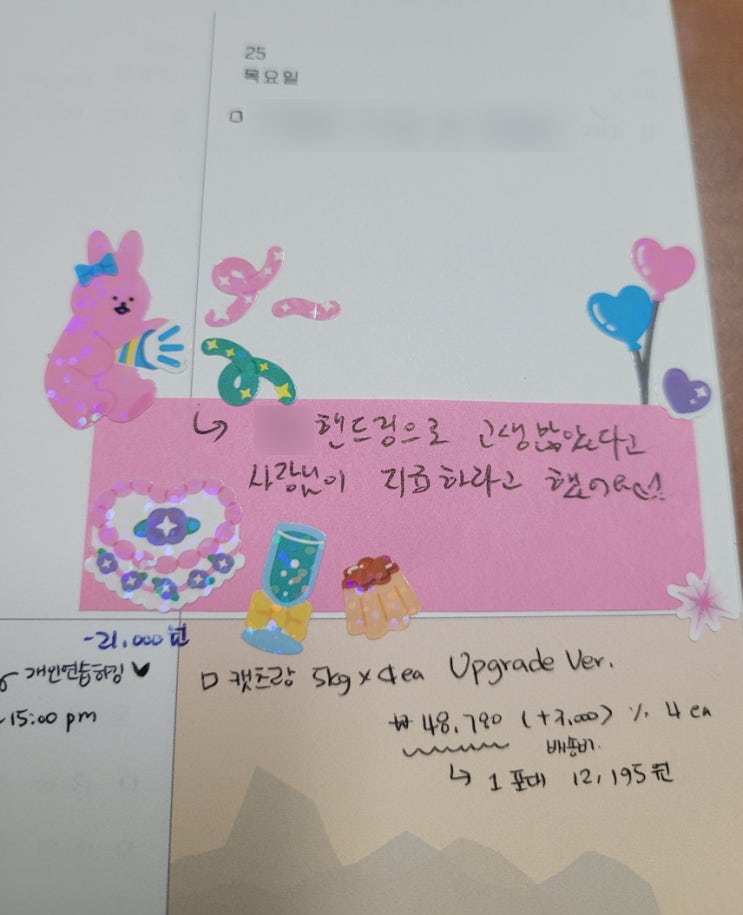 25
목요일
↳ 핸드링으로 고생많았다고
사장님이 지급하라고 했어요!!
-21,000원
개인연습하킹 ♥
-15:00 pm
□ 캣츠랑 5kg × 4ea Upgrade Ver.
₩ 48,780 (+3,000) % 4 ea
배송비.
↳ 1 포대 12,195원